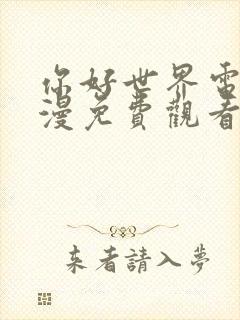 你好世界電
漫免費觀看
来者請入夢